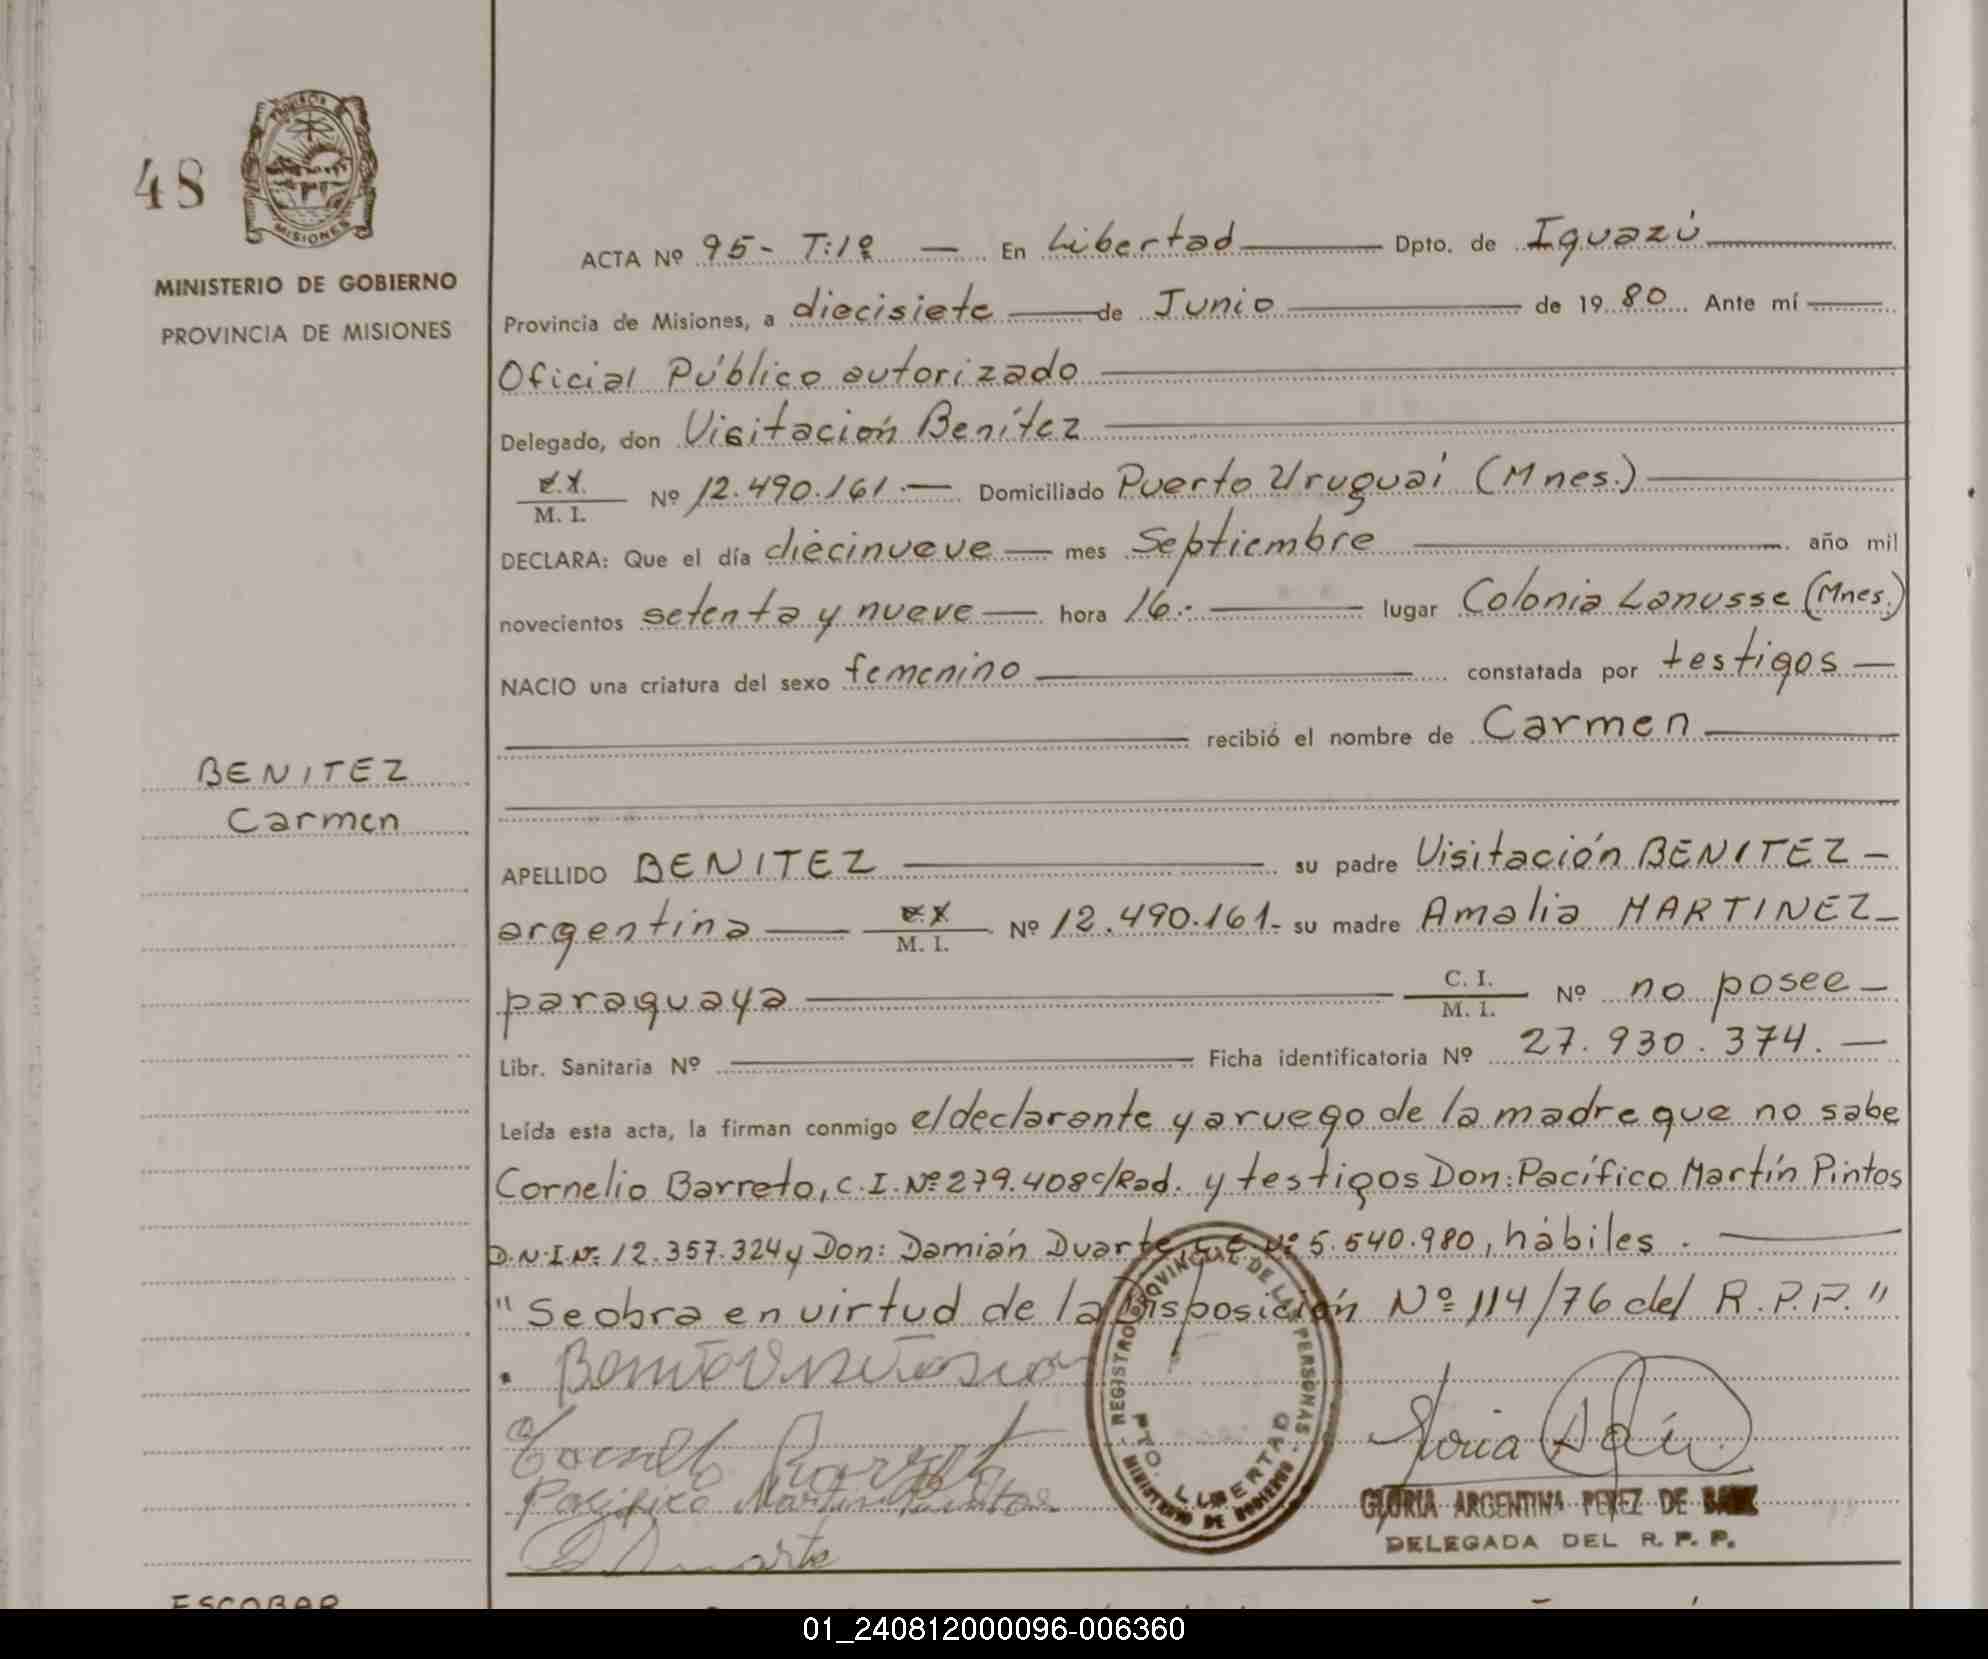 48
PROVINCIA
MISIONES
MINISTERIO DE GOBIERNO
PROVINCIA DE MISIONES
BENITEZ
Carmen
ESCOBAR
ACTA Nº 95- T:1º — En Libertad Dpto. de Iguazú
Provincia de Misiones, a diecisiete de Junio de 1980 Ante mí
Oficial Público autorizado
Delegado, don Visitación Benítez
M. I. Nº 12.490.161.- Domiciliado Puerto Uruguaí (Mnes.)
DECLARA: Que el día diecinueve mes Septiembre año mil
novecientos setenta y nueve hora 16.- lugar Colonia Lanusse (Mnes.)
NACIO una criatura del sexo femenino constatada por testigos
recibió el nombre de Carmen
APELLIDO BENITEZ su padre Visitación BENITEZ
argentina M. I. Nº 12.490.161.- su madre Amalia MARTINEZ
paraguaya C. I. M. I. Nº no posee
Libr. Sanitaria Nº Ficha identificatoria Nº 27.930.374.
Leída esta acta, la firman conmigo el declarante y a ruego de la madre que no sabe
Cornelio Barreto, C.I.Nº 279.408 c/Rad. y testigos Don: Pacífico Martín Pintos
D.N.I.Nº 12.357.324 y Don: Damián Duarte, Nº 5.540.980, hábiles.
"Se obra en virtud de la Disposición Nº 114/76 del R.P.P."
REGISTRO PROVINCIAL DE LAS PERSONAS
PTO. LIBERTAD
MINISTERIO DE GOBIERNO
Pacifico Martin Pintos
D Duarte
GLORIA ARGENTINA PEREZ DE
DELEGADA DEL R. P. P.
01_240812000096-006360